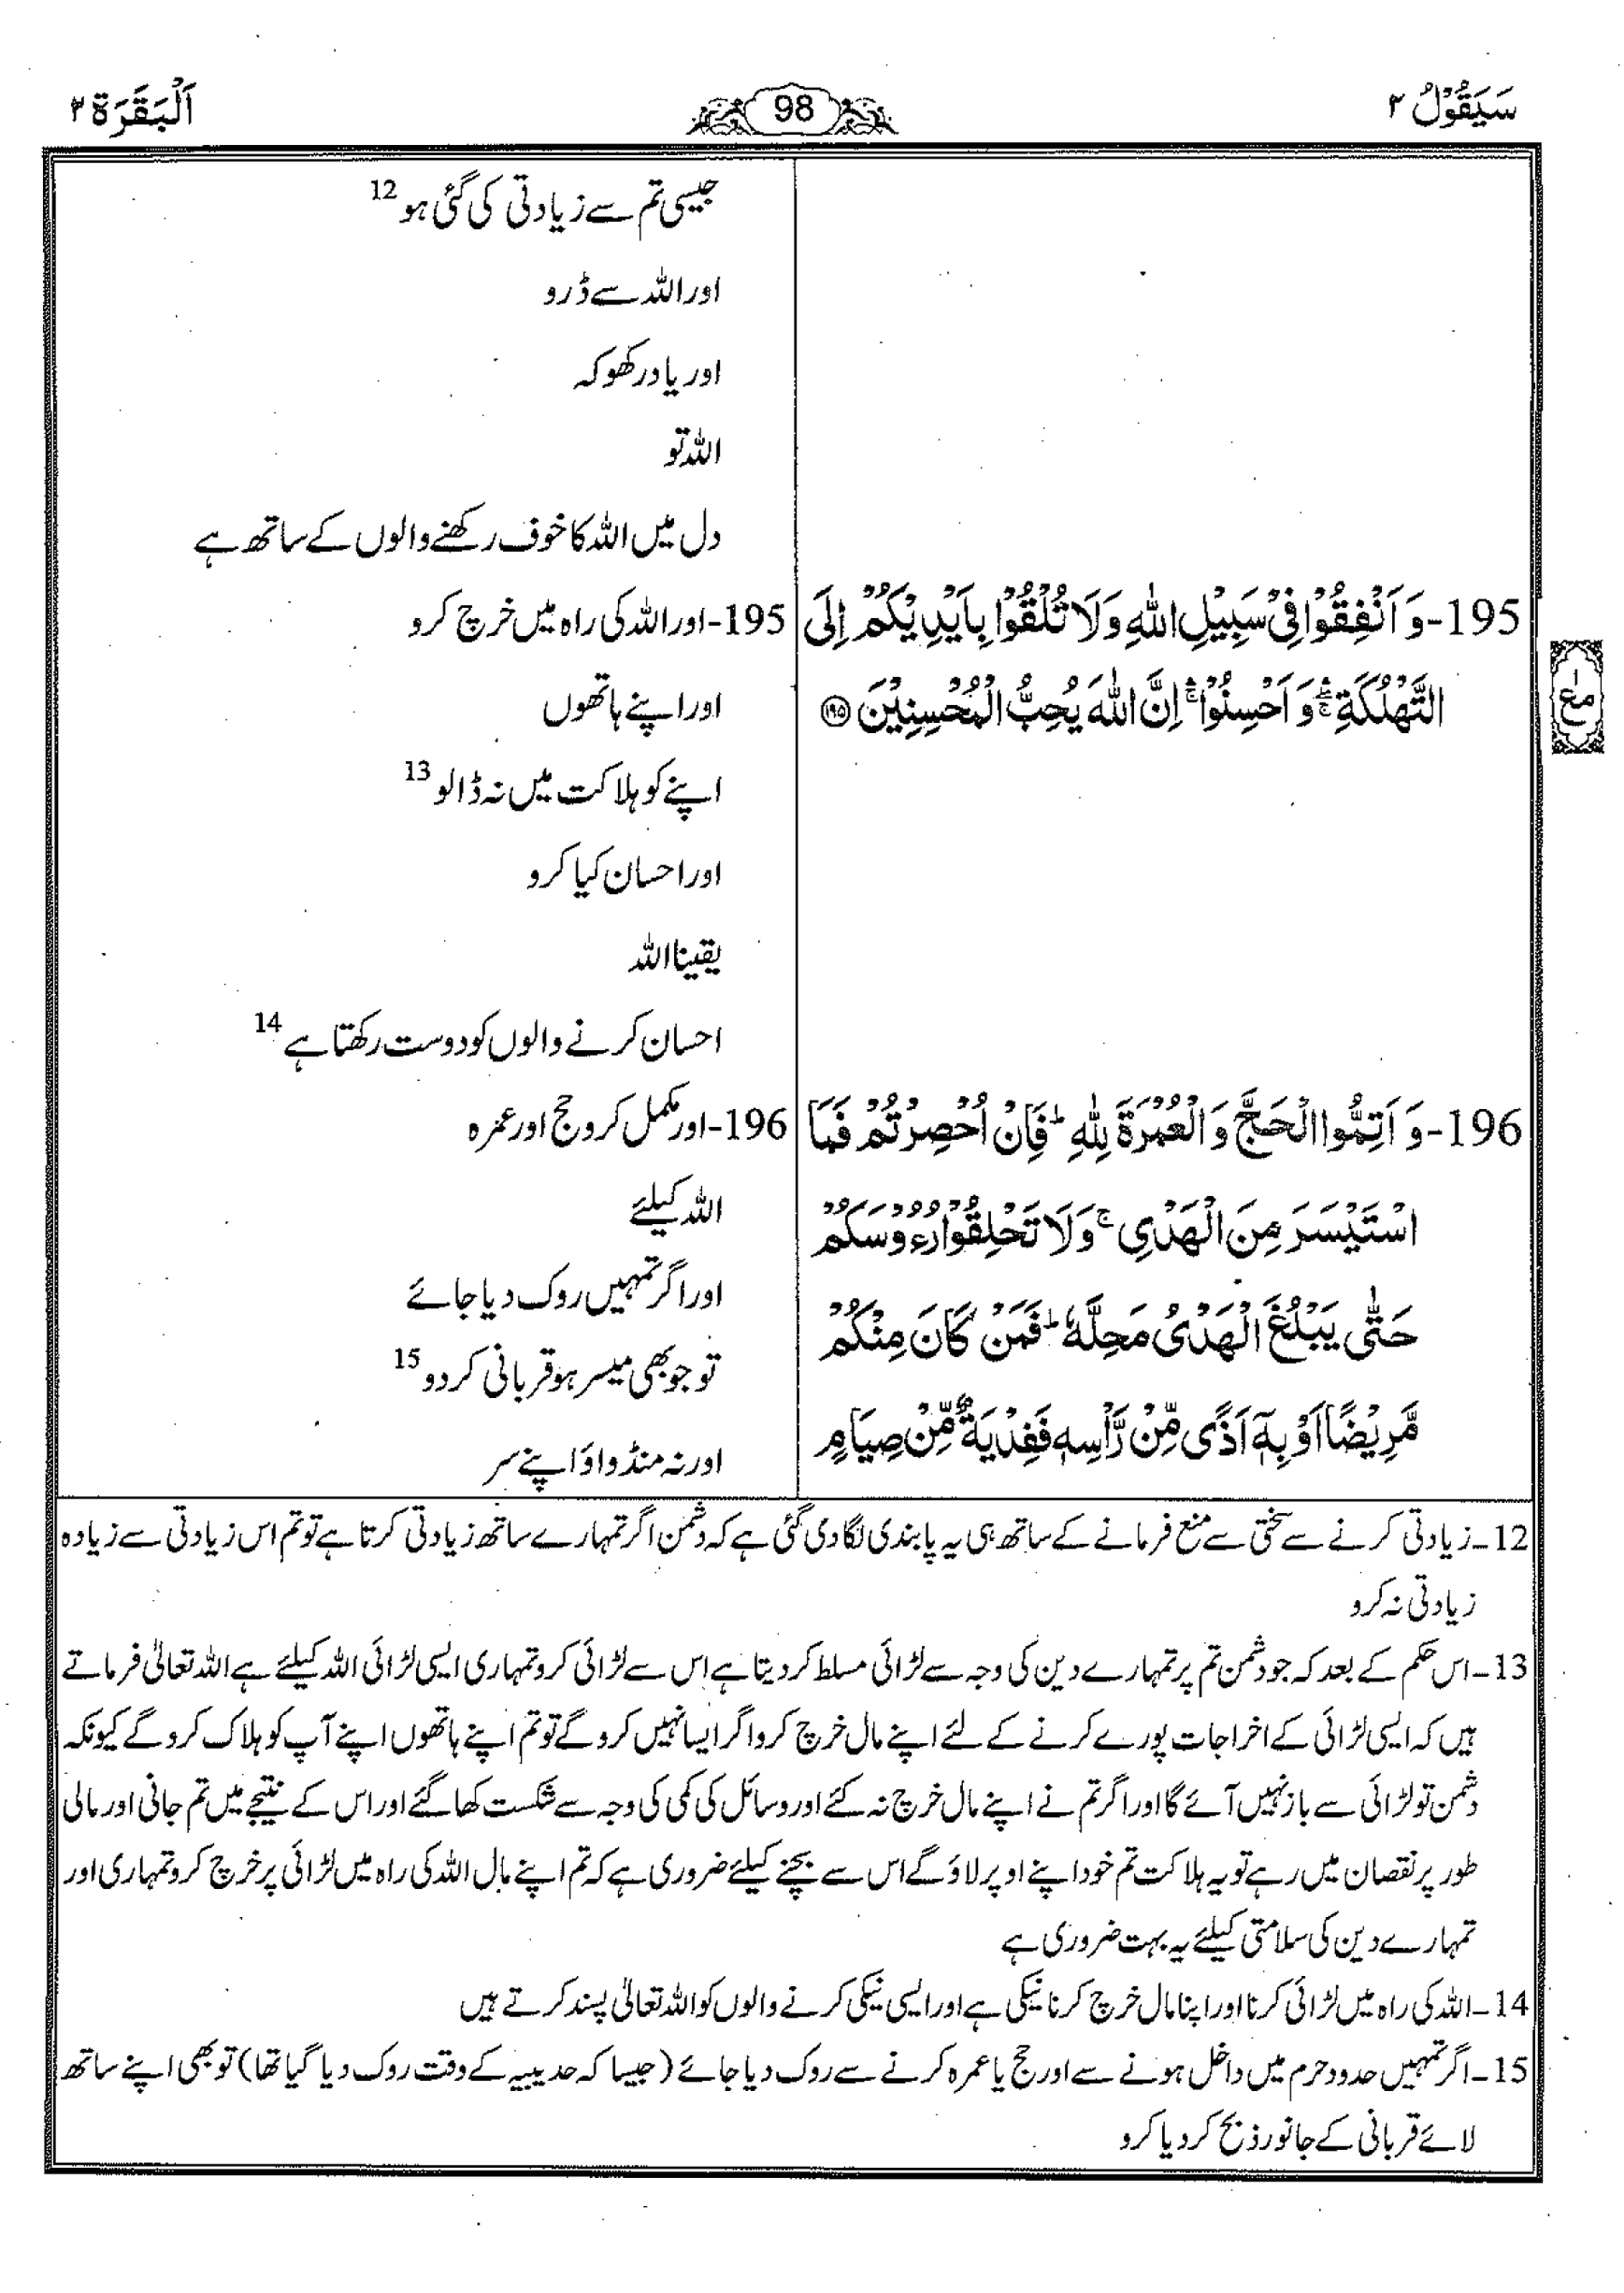 سَيَقُوْلُ ٢
98
اَلْبَقَرَة ٢
195-وَ اَنْفِقُوْا فِيْ سَبِيْلِ اللّٰهِ وَلَا تُلْقُوْا بِاَيْدِيْكُمْ اِلَى
التَّهْلُكَةِ ۛۚ وَ اَحْسِنُوْا ۛۚ اِنَّ اللّٰهَ يُحِبُّ الْمُحْسِنِيْنَ ۝١٩٥
196-وَ اَتِمُّوا الْحَجَّ وَ الْعُمْرَةَ لِلّٰهِ ؕ فَاِنْ اُحْصِرْتُمْ فَمَا
اسْتَيْسَرَ مِنَ الْهَدْيِ ۚ وَلَا تَحْلِقُوْا رُءُوْسَكُمْ
حَتّٰى يَبْلُغَ الْهَدْيُ مَحِلَّهٗ ؕ فَمَنْ كَانَ مِنْكُمْ
مَّرِيْضًا اَوْ بِهٖٓ اَذًى مِّنْ رَّاْسِهٖ فَفِدْيَةٌ مِّنْ صِيَامٍ
مع
١
جیسی تم سے زیادتی کی گئی ہو 12
اور اللہ سے ڈرو
اور یاد رکھو کہ
اللہ تو
دل میں اللہ کا خوف رکھنے والوں کے ساتھ ہے
195-اور اللہ کی راہ میں خرچ کرو
اور اپنے ہاتھوں
اپنے کو ہلاکت میں نہ ڈالو 13
اور احسان کیا کرو
یقینا اللہ
احسان کرنے والوں کو دوست رکھتا ہے 14
196-اور مکمل کرو حج اور عمرہ
اللہ کیلئے
اور اگر تمہیں روک دیا جائے
تو جو بھی میسر ہو قربانی کر دو 15
اور نہ منڈواؤ اپنے سر
12۔زیادتی کرنے سے سختی سے منع فرمانے کے ساتھ ہی یہ پابندی لگا دی گئی ہے کہ دشمن اگر تمہارے ساتھ زیادتی کرتا ہے تو تم اس زیادتی سے زیادہ
زیادتی نہ کرو
13۔اس حکم کے بعد کہ جو دشمن تم پر تمہارے دین کی وجہ سے لڑائی مسلط کر دیتا ہے اس سے لڑائی کرو تمہاری ایسی لڑائی اللہ کیلئے ہے اللہ تعالیٰ فرماتے
ہیں کہ ایسی لڑائی کے اخراجات پورے کرنے کے لئے اپنے مال خرچ کرو اگر ایسا نہیں کرو گے تو تم اپنے ہاتھوں اپنے آپ کو ہلاک کرو گے کیونکہ
دشمن تو لڑائی سے باز نہیں آئے گا اور اگر تم نے اپنے مال خرچ نہ کئے اور وسائل کی کمی کی وجہ سے شکست کھا گئے اور اس کے نتیجے میں تم جانی اور مالی
طور پر نقصان میں رہے تو یہ ہلاکت تم خود اپنے اوپر لاؤ گے اس سے بچنے کیلئے ضروری ہے کہ تم اپنے مال اللہ کی راہ میں لڑائی پر خرچ کرو تمہاری اور
تمہارے دین کی سلامتی کیلئے یہ بہت ضروری ہے
14۔اللہ کی راہ میں لڑائی کرنا اور اپنا مال خرچ کرنا نیکی ہے اور ایسی نیکی کرنے والوں کو اللہ تعالیٰ پسند کرتے ہیں
15۔اگر تمہیں حدود حرم میں داخل ہونے سے اور حج یا عمرہ کرنے سے روک دیا جائے (جیسا کہ حدیبیہ کے وقت روک دیا گیا تھا) تو بھی اپنے ساتھ
لائے قربانی کے جانور ذبح کر دیا کرو